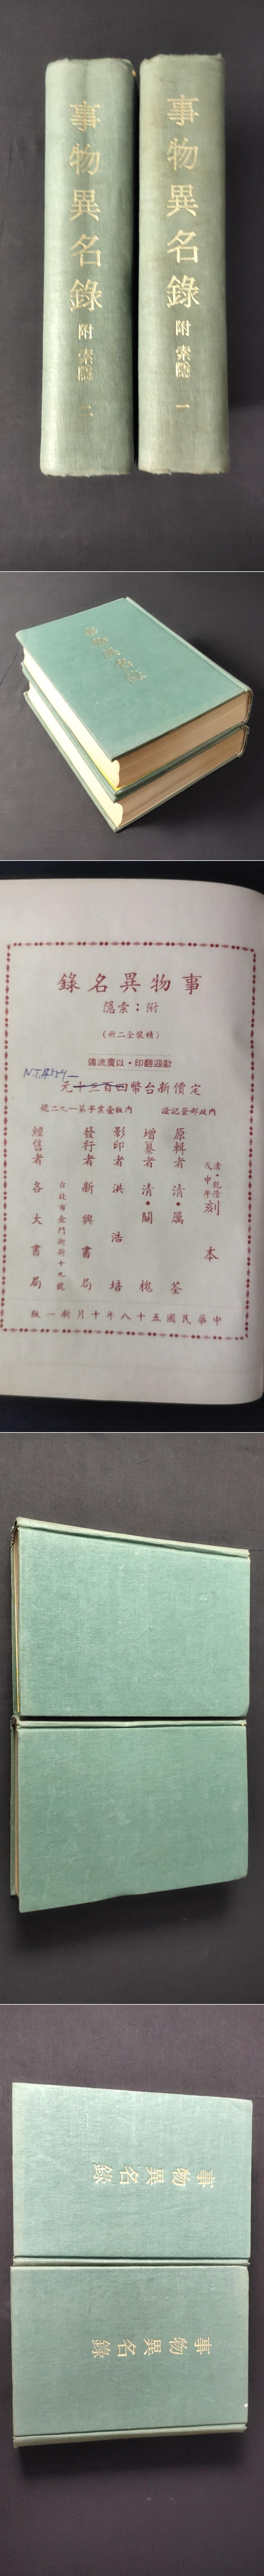 事物異名錄 附 索隱 二
事物異名錄 附 索隱 一
事物異名錄
附：索隱
（精裝全二冊）
歡迎翻印・以廣流傳
定價新台幣四百十三元
內政部登記證 內版臺業字第一九二號
清・乾隆戊申年刻本
原輯者 清・厲荃
增纂者 清・關槐
影印者 洪浩培
發行者 新興書局
台北市金門街新十九號
經售者 各大書局
中華民國五十八年十月新一版
事物異名錄
事物異名錄